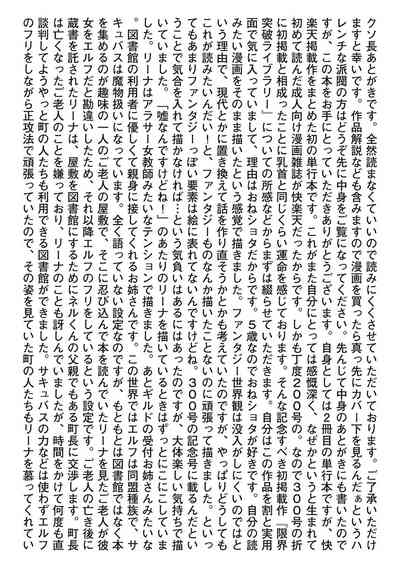 クソ長あとがきです。全然読まなくていいので読みにくくさせていただいております。ご了承いただけ
ますと幸いです。作品解説なども含みますので漫画を買ったら真っ先にカバー下を見るんだぁというハ
レンチな派閥の方はどうぞ先に中身をご覧になってください。先んじて中身のあとがきにも書いたので
すが、この本をお手にとっていただきありがとうございます。自身としては2冊目の単行本ですが、快
楽天掲載作をまとめた初の単行本です。これがまた自分にとっては感慨深く、なぜかというと生まれて
初めて読んだ成人向け漫画雑誌が快楽天だったからです。しかも丁度200号の。なので300号の折
に初掲載と相成ったことに乳首と同じくらい運命を感じております。そんな記念すべき初掲載作『限界
突破ライブラリー』についての所感などからまずは綴らせていただきます。自分はこの作品を割と実用
面で気に入っていまして、理由はおねショタだからです。5歳なのでおねショタが好きです。自分の読
みたい漫画をそのまま描いたという感覚で描きました。ファンタジー世界観は没入がしにくいのではと
いう理由で、現代とかに置き換えて話を作り直そうかとかも考えていたのですが、やっぱりどうしても
これが読みたいんだい！と、ファンタジーものなんか描いたことないのに頑張って描きました。といっ
てもあまりファンタジーっぽい要素は絵に表れていないんですけどね。300号の記念号に載るんだとい
うことで気合を入れて描かなければ…という気負いはあるにはあったのですが、大体楽しい気持ちで描
いていました。「嘘なんですけどね！」のあたりのリーナを描いているときはずっとにこにこしていま
した。リーナはアラサー女教師みたいなテンションで描きました。あとギルドの受付お姉さんみたいな
。図書館の利用者に優しくて親身に接してくれるお姉さんです。この世界ではエルフは同盟種族で、サ
キュバスは魔物扱いになっています。全く語っていない設定なのですが、もともとは図書館ではなく本
を集めるのが趣味の一人のご老人の屋敷で、そこに忍び込んで本を読んでいたリーナを見たご老人が彼
女をエルフだと勘違いしたため、それ以降エルフのフリをしているという設定です。ご老人の亡き後に
蔵書を託されたリーナは、屋敷を図書館にするためにネルくんの父親でもある町長に交渉します。町長
は亡くなったご老人のことを嫌っており、リーナのことも訝しんでいましたが、時間をかけて何度も直
談判してようやっと町の人たちも利用できる図書館ができました。サキュバスの力などは使わずエルフ
のフリをしながら正攻法で頑張っていたので、その姿を見ていた町の人たちもリーナを慕ってくれてい